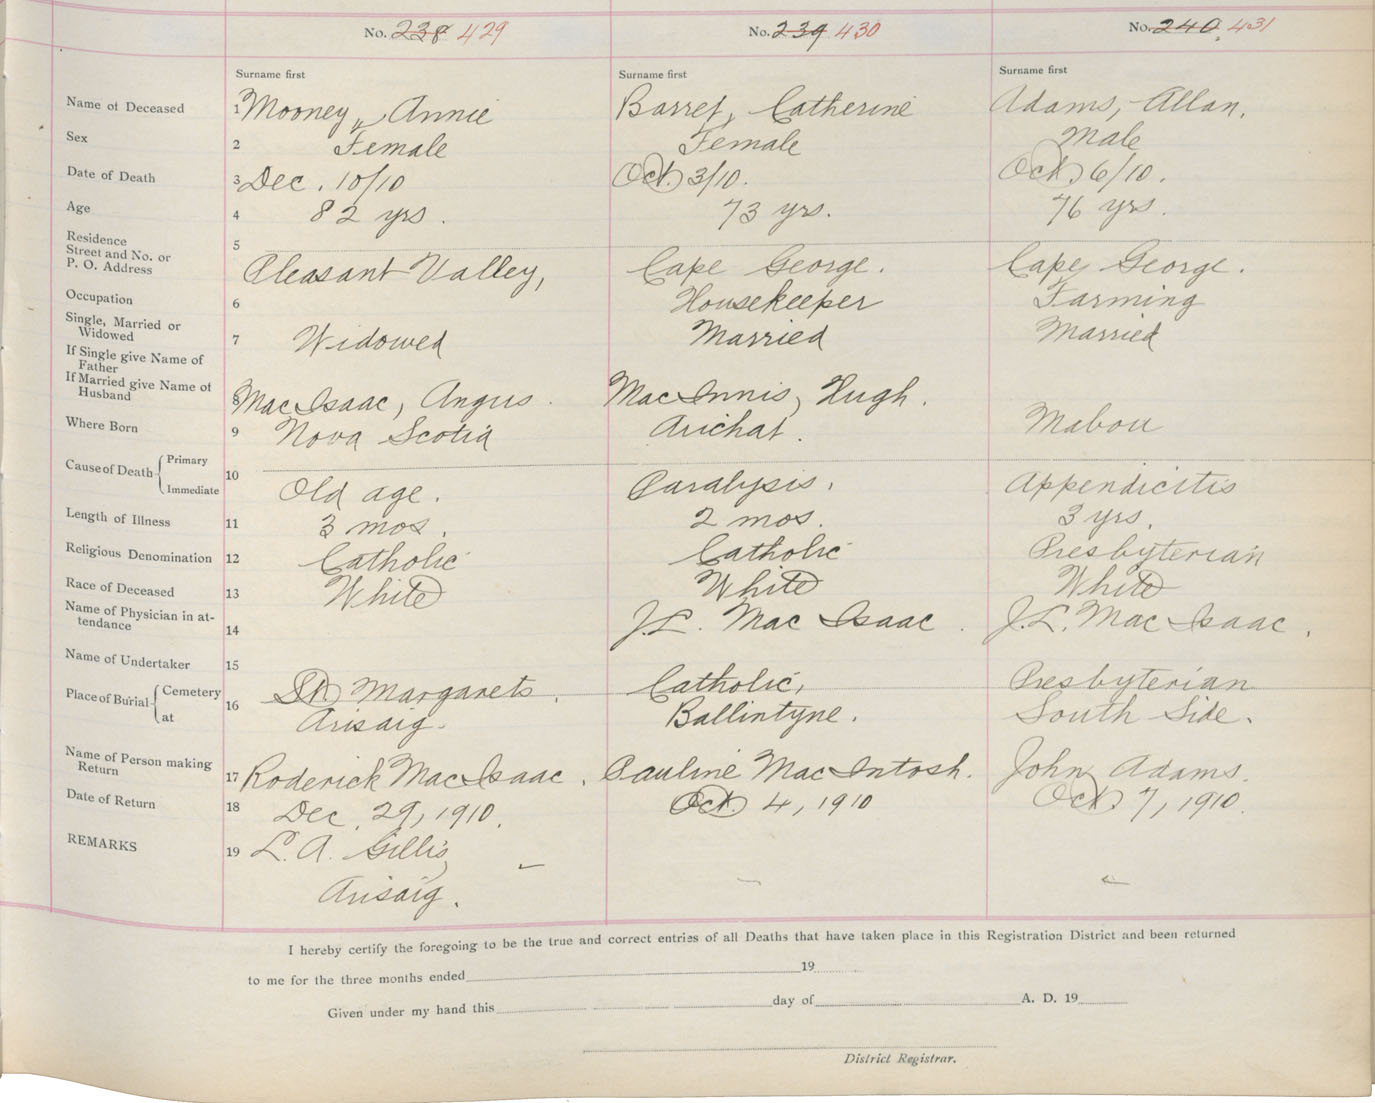 No. 238 429 No. 239 430 No. 240 431
Surname first Surname first Surname first
Name of Deceased 1 Mooney, Annie Barret, Catherine Adams, Allan.
Sex 2 Female Female Male
Date of Death 3 Dec. 10/10 Oct. 3/10. Oct. 6/10.
Age 4 82 yrs. 73 yrs. 76 yrs.
Residence 5
Street and No. or
P. O. Address Pleasant Valley, Cape George. Cape George.
Occupation 6 Housekeeper Farming
Single, Married or
Widowed 7 Widowed Married Married
If Single give Name of
Father
If Married give Name of
Husband 8 MacIsaac, Angus. MacInnis, Hugh.
Where Born 9 Nova Scotia Arichat. Mabou
Cause of Death { Primary 10
Immediate Old age. Paralysis. Appendicitis
Length of Illness 11 3 mos. 2 mos. 3 yrs.
Religious Denomination 12 Catholic Catholic Presbyterian
Race of Deceased 13 White White White
Name of Physician in at-
tendance 14 J.L. MacIsaac. J.L. MacIsaac.
Name of Undertaker 15
Place of Burial { Cemetery 16 St. Margarets. Catholic, Presbyterian
at Arisaig. Ballintyne. South Side.
Name of Person making
Return 17 Roderick MacIsaac. Pauline MacIntosh. John Adams.
Date of Return 18 Dec. 29, 1910. Oct. 4, 1910 Oct. 7, 1910.
REMARKS 19 L. A. Gillis,
Arisaig.
I hereby certify the foregoing to be the true and correct entries of all Deaths that have taken place in this Registration District and been returned
to me for the three months ended 19
Given under my hand this day of A. D. 19
District Registrar.